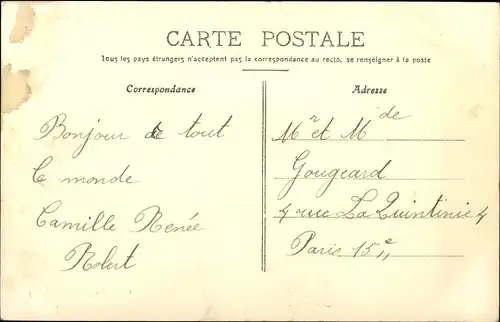 CARTE POSTALE
Tous les pays étrangers n'acceptent pas la correspondance au recto, se renseigner à la poste
Correspondance
Bonjour de tout
le monde
Camille Renée
Robert
Adresse
Mr et Mde
Gougeard
4 rue La Quintinie 4
Paris 15e